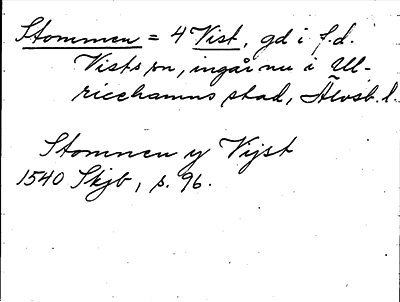 Stommen = 4 Vist, gd i f.d.
Vists sn, ingår nu i Ul-
ricehamns stad, Älvsb. l.
Stommen y Vijst
1540 Skjb, s. 96.